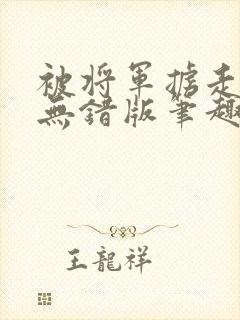 被将军掳走
無錯版筆趣
王龍祥